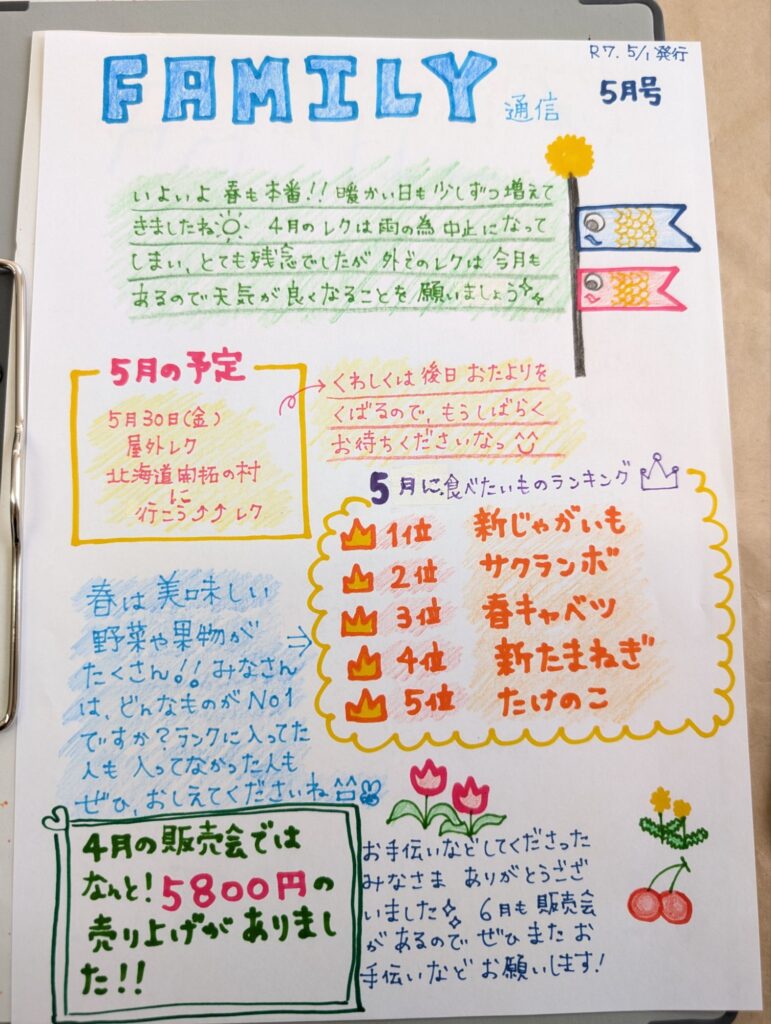 R7. 5/1 発行
FAMILY 通信
5月号
いよいよ 春も本番!! 暖かい日も少しずつ増えて
きましたね☼ 4月のレクは雨の為 中止になって
しまい、とても残念でしたが 外でのレクは 今月も
あるので天気が良くなることを 願いましょう✧✧
5月の予定
5月30日(金)
屋外レク
北海道開拓の村
に
行こう⤴⤴レク
くわしくは後日 おたよりを
くばるので、もうしばらく
お待ちくださいなっ
5月に食べたいものランキング
1位 新じゃがいも
2位 サクランボ
3位 春キャベツ
4位 新たまねぎ
5位 たけのこ
春は美味しい
野菜や果物が
たくさん!! みなさん
は、どんなものがNo1
ですか?ランクに入ってた
人も 入ってなかった人も
ぜひ、おしえてくださいね
4月の販売会では
なんと!5800円の
売り上げがありまし
た!!
お手伝いなどしてくださった
みなさま ありがとうござ
いました✧ 6月も販売会
があるので ぜひまたお
手伝いなど お願いします!